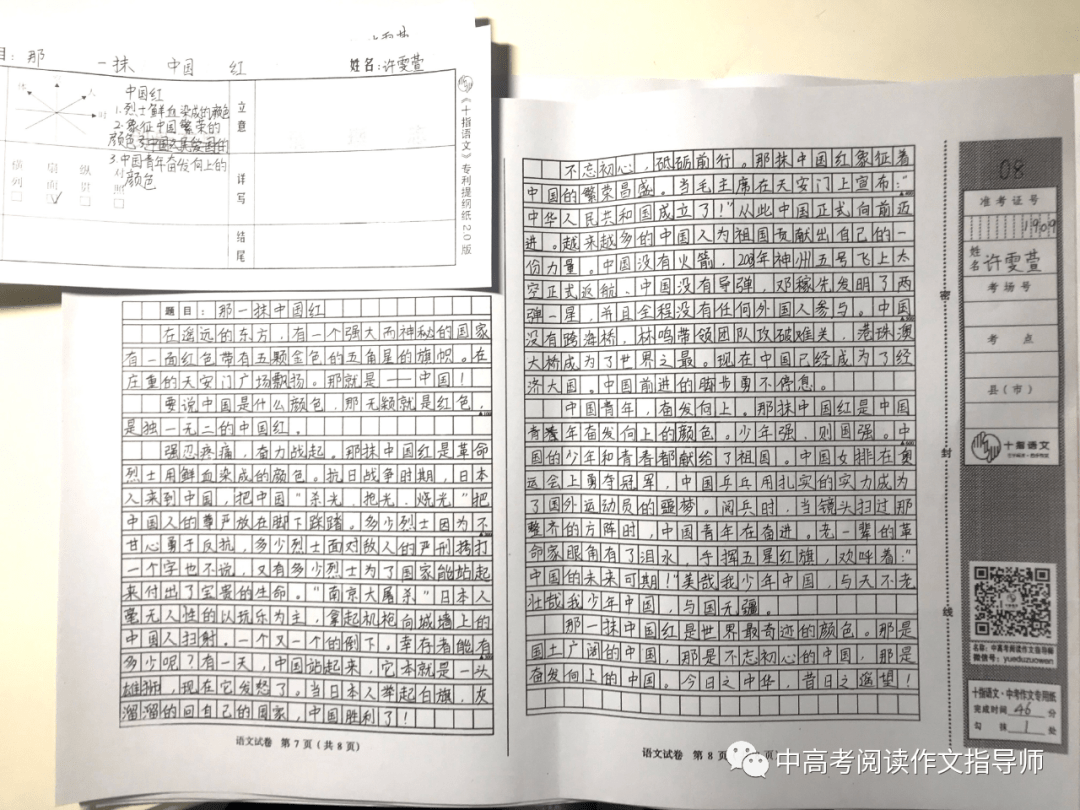 目：那 一抹 中国 红 姓名：许雯萱
人
时
中国红
1.烈士鲜血染成的颜色
2.象征中国繁荣的
颜色
3.中国青年奋发向上的
颜色
立意
详写
结尾
横列
扇面
纵贯
对照
《十指语文》专利提纲纸2.0版
题目：那一抹中国红
在遥远的东方，有一个强大而神秘的国家
有一面红色带有五颗金色的五角星的旗帜。在
庄重的天安门广场飘扬。那就是——中国！
要说中国是什么颜色，那无疑就是红色，
是独一无二的中国红。
强忍疼痛，奋力战起。那抹中国红是革命
烈士用鲜血染成的颜色。抗日战争时期，日本
人来到中国，把中国“杀光、抢光、烧光”把
中国人的尊严放在脚下踩踏。多少烈士因为不
甘心勇于反抗，多少烈士面对敌人的严刑拷打
一个字也不说，又有多少烈士为了国家能站起
来付出了宝贵的生命。“南京大屠杀”日本人
毫无人性的以玩乐为主，拿起机枪向城墙上的
中国人扫射。一个又一个的倒下。幸存者能有
多少呢？有一天，中国站起来，它本就是一头
雄狮，现在它发怒了。当日本人举起白旗，灰
溜溜的回自己的国家，中国胜利了！
语文试卷 第7页（共8页）
不忘初心，砥砺前行。那抹中国红象征着
中国的繁荣昌盛。当毛主席在天安门上宣布：“
中华人民共和国成立了！”从此中国正式向前迈
进。越来越多的中国人为祖国贡献出自己的一
份力量。中国没有火箭，2003年神州五号飞上太
空正式返航、中国没有导弹，邓稼先发明了两
弹一星，并且全程没有任何外国人参与。中国
没有跨海桥，林鸣带领团队攻破难关，港珠澳
大桥成为了世界之最。现在中国已经成为了经
济大国。中国前进的脚步勇不停息。
中国青年，奋发向上。那抹中国红是中国
青年奋发向上的颜色。少年强，则国强。中
国的少年和青春都献给了祖国。中国女排在奥
运会上勇夺冠军，中国乒乓用扎实的实力成为
了国外运动员的噩梦。阅兵时，当镜头扫过那
整齐的方阵时，中国青年在奋进。老一辈的革
命家眼角有了泪水，手挥五星红旗，欢呼着：“
中国的未来可期！”美哉我少年中国，与天不老
壮哉我少年中国，与国无疆。
那一抹中国红是世界最奇迹的颜色。那是
国土广阔的中国，那是不忘初心的中国，那是
奋发向上的中国。今日之中华，昔日之遥望！
语文试卷 第8页
密
封
线
08
准考证号
1909
姓名 许雯萱
考场号
考点
县（市）
十指语文
名称：中高考阅读作文指导师
微信号：yueduzuowen
十指语文·中考作文专用纸
完成时间 46 分
勾抹 1 处
中高考阅读作文指导师